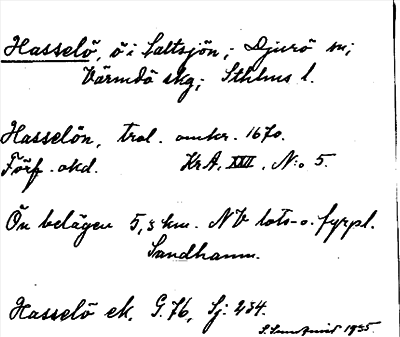 Hasselö, ö i Saltsjön; Djurö sn;
Värmdö skg; Sthlms l.
Hasselön, trol. omkr. 1670.
Förf. okd. KrA, XXII, N:o 5.
Ön belägen 5,3 km. NV lots- o. fyrpl.
Sandhamn.
Hasselö ek. G. 76, Sj: 254.
S. Lundquist 1935.